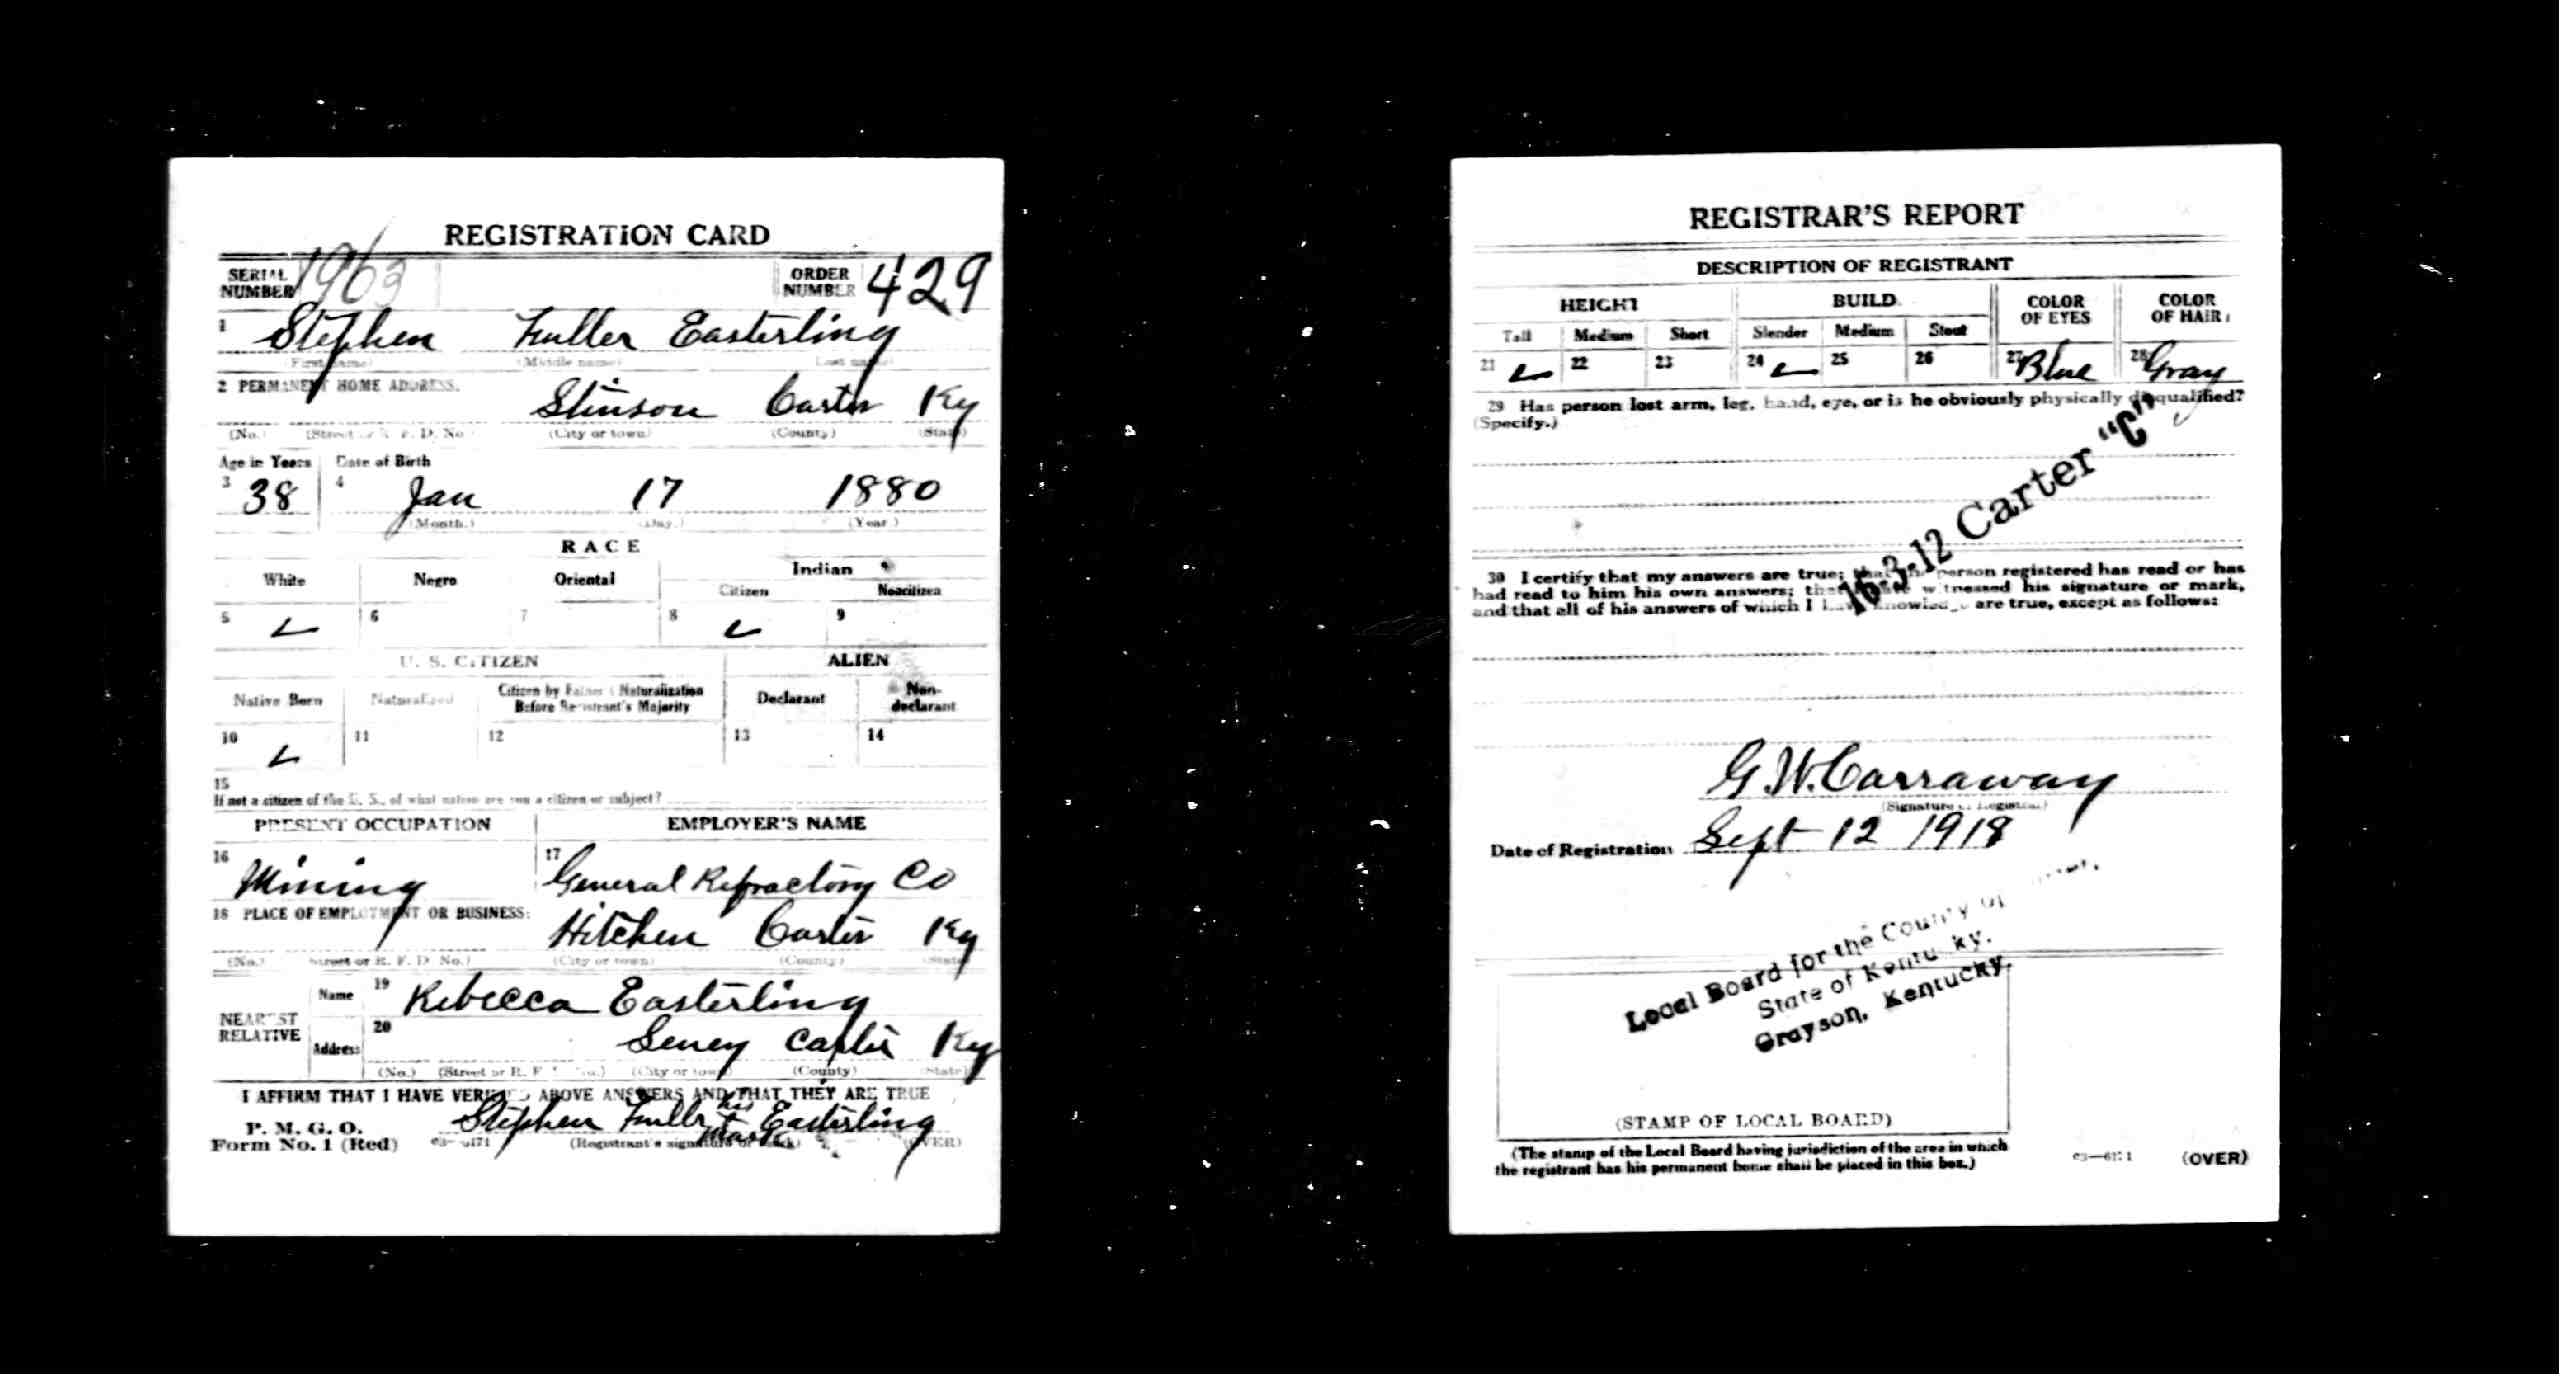 REGISTRATION CARD
SERIAL NUMBER 1963 ORDER NUMBER 429
1 Stephen Fuller Easterling
(First name) (Middle name) (Last name)
2 PERMANENT HOME ADDRESS.
Stinson Carter Ky
(No.) (Street or R. F. D. No.) (City or town) (County) (State)
Age in Years Date of Birth
3 38 4 Jan 17 1880
(Month.) (Day.) (Year.)
RACE
White Negro Oriental Indian
Citizen Noncitizen
5 6 7 8 9
U. S. CITIZEN ALIEN
Native Born Naturalized Citizen by Father's Naturalization Before Registrant's Majority Declarant Non-declarant
10 11 12 13 14
15
If not a citizen of the U. S., of what nation are you a citizen or subject?
PRESENT OCCUPATION EMPLOYER'S NAME
16 Mining 17 General Refractory Co
18 PLACE OF EMPLOYMENT OR BUSINESS:
Hitchen Carter Ky
(No.) (Street or R. F. D. No.) (City or town) (County) (State)
NEAREST RELATIVE
Name 19 Rebecca Easterling
Address 20 Carter Ky
(No.) (Street or R. F. D. No.) (City or town) (County) (State)
I AFFIRM THAT I HAVE VERIFIED ABOVE ANSWERS AND THAT THEY ARE TRUE
P. M. G. O.
Form No. 1 (Red)
Stephen Fuller his mark Easterling
(Registrant's signature or mark) (OVER)
REGISTRAR'S REPORT
DESCRIPTION OF REGISTRANT
HEIGHT BUILD COLOR OF EYES COLOR OF HAIR
Tall Medium Short Slender Medium Stout
21 22 23 24 25 26 27 Blue 28 Gray
29 Has person lost arm, leg, hand, eye, or is he obviously physically disqualified?
(Specify.)
16-3-12 Carter "C"
30 I certify that my answers are true; that the person registered has read or has
had read to him his own answers; that I have witnessed his signature or mark,
and that all of his answers of which I have knowledge are true, except as follows:
G. W. Carraway
(Signature of Registrar)
Date of Registration Sept 12 1918
Local Board for the County of
State of Kentucky.
Grayson, Kentucky.
(STAMP OF LOCAL BOARD)
(The stamp of the Local Board having jurisdiction of the area in which
the registrant has his permanent home shall be placed in this box.)
(OVER)